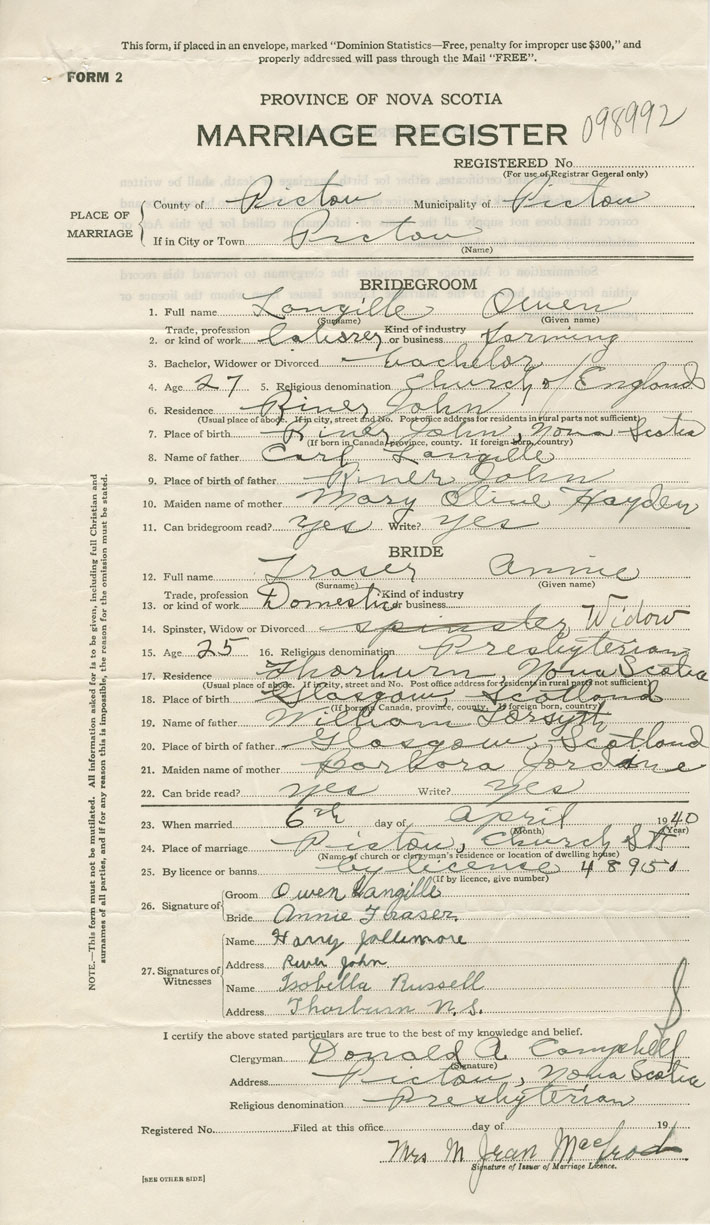 This form, if placed in an envelope, marked "Dominion Statistics—Free, penalty for improper use $300," and
properly addressed will pass through the Mail "FREE".
FORM 2
PROVINCE OF NOVA SCOTIA
MARRIAGE REGISTER 098992
REGISTERED No.
(For use of Registrar General only)
PLACE OF MARRIAGE
County of Pictou Municipality of Pictou
If in City or Town Pictou
(Name)
BRIDEGROOM
1. Full name Langille Owen
(Surname) (Given name)
2. Trade, profession or kind of work labourer Kind of industry or business farming
3. Bachelor, Widower or Divorced bachelor
4. Age 27 5. Religious denomination Church of England
6. Residence River John
(Usual place of abode. If in city, street and No. Post office address for residents in rural parts not sufficient)
7. Place of birth River John, Nova Scotia
(If born in Canada, province, county. If foreign born, country)
8. Name of father Carl Langille
9. Place of birth of father River John
10. Maiden name of mother Mary Olive Hayden
11. Can bridegroom read? yes Write? yes
BRIDE
12. Full name Fraser Annie
(Surname) (Given name)
13. Trade, profession or kind of work Domestic Kind of industry or business
14. Spinster, Widow or Divorced spinster Widow
15. Age 25 16. Religious denomination Presbyterian
17. Residence Thorburn, Nova Scotia
(Usual place of abode. If in city, street and No. Post office address for residents in rural parts not sufficient)
18. Place of birth Glasgow Scotland
(If born in Canada, province, county. If foreign born, country)
19. Name of father William Forsyth
20. Place of birth of father Glasgow, Scotland
21. Maiden name of mother Barbara
22. Can bride read? yes Write? yes
23. When married 6th day of April 1940
(Month) (Year)
24. Place of marriage Pictou, Church St
(Name of church or clergyman's residence or location of dwelling house)
25. By licence or banns by license 48951
(If by licence, give number)
26. Signature of
Groom Owen Langille
Bride Annie Fraser
27. Signatures of Witnesses
Name Harry Jollimore
Address River John
Name Isobella Russell
Address Thorburn N.S.
I certify the above stated particulars are true to the best of my knowledge and belief.
Clergyman Donald A. Campbell
(Signature)
Address Pictou, Nova Scotia
Religious denomination Presbyterian
Registered No. Filed at this office day of 19
Mrs M Jean MacLeod
Signature of Issuer of Marriage Licence.
[SEE OTHER SIDE]
NOTE.—This form must not be mutilated. All information asked for is to be given, including full Christian and
surnames of all parties, and if for any reason this is impossible, the reason for the omission must be stated.